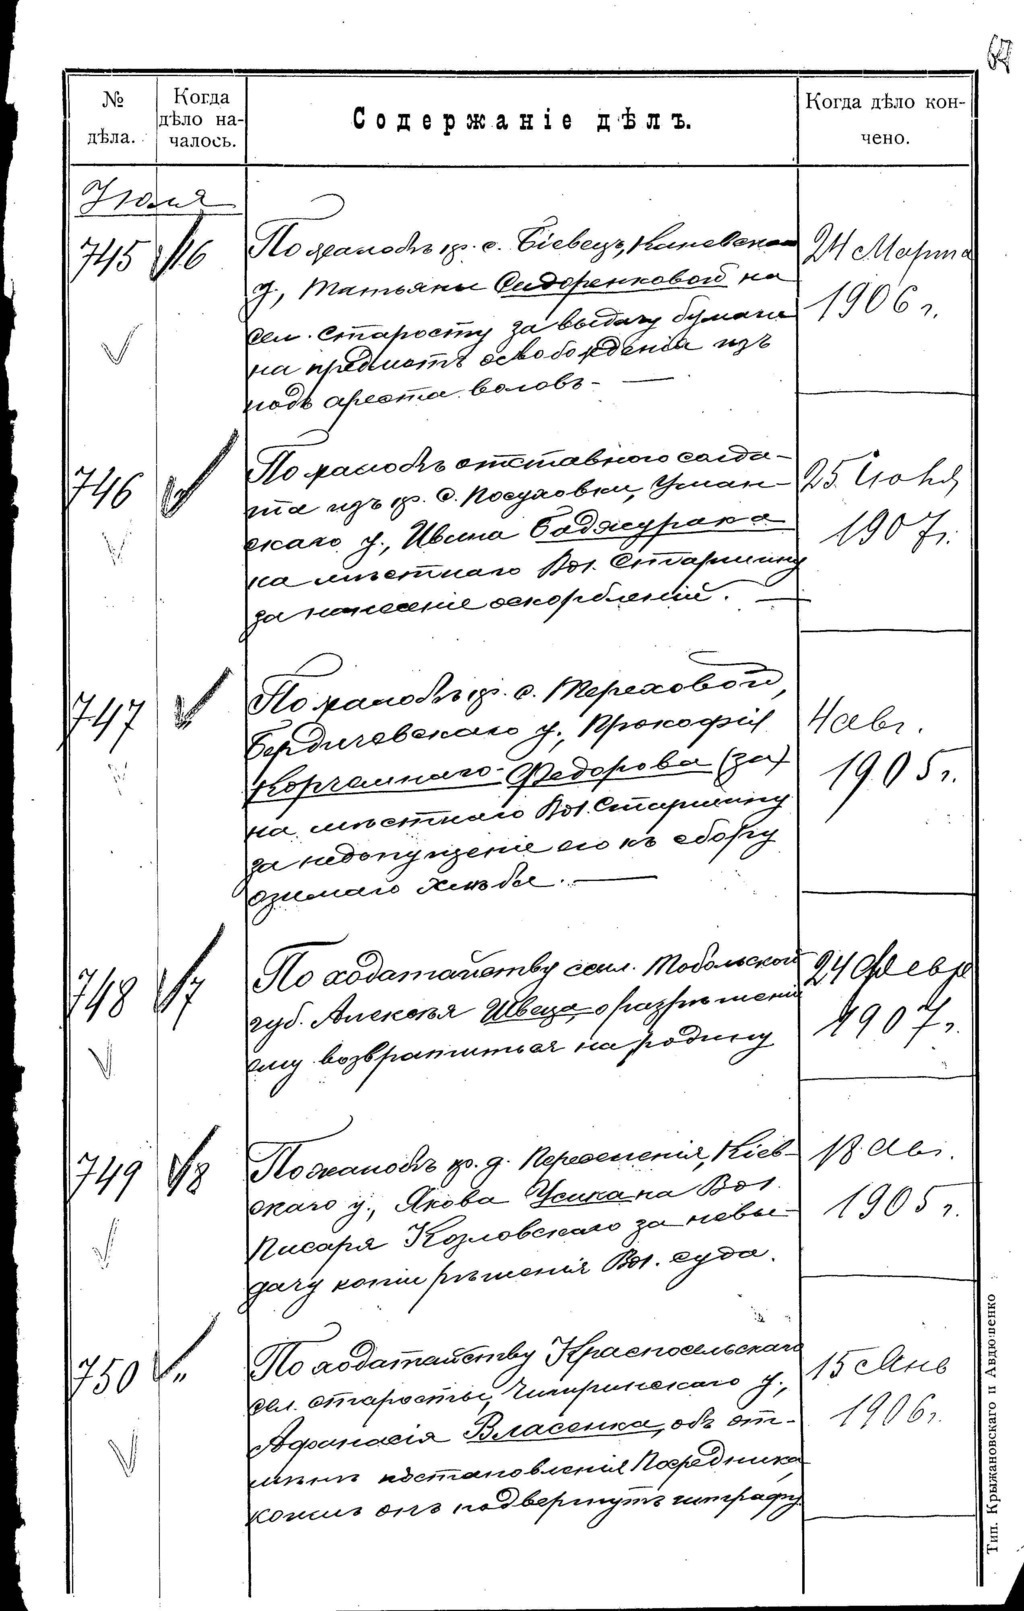 № дѣла.
Когда дѣло на-чалось.
Содержаніе дѣлъ.
Когда дѣло кон-чено.
Июля
745
16
По жалобѣ кр. с. Біевецъ, Каневскаго
у., Татьяны Сидоренковой на
сел. старосту за выдачу бумаги
на предметъ освобожденія изъ
подъ ареста воловъ. —
24 Марта
1906 г.
746
По жалобѣ отставного солда-
та изъ кр. с. Посуховки, Уман-
скаго у., Ивана Бадяжурака
на мѣстнаго Вол. Старшину
за нанесеніе оскорбленій. —
25 Іюня
1907 г.
747
По жалобѣ кр. с. Тереховой,
Бердичевскаго у., Прокофія
Корчемнаго-Федорова (за)
на мѣстнаго Вол. Старшину
за недопущеніе его къ сбору
озимаго хлѣба. —
4 авг.
1905 г.
748
17
По ходатайству ссыл. Тобольской
губ. Алексѣя Швеца, о разрѣшеніи
ему возвратиться на родину
24 Февр
1907 г.
749
18
По жалобѣ кр. д. Переселенія, Кіев-
скаго у., Якова Усика на Вол.
Писаря Козловскаго за невы-
дачу копіи рѣшенія Вол. суда.
18 Авг.
1905 г.
750
"
По ходатайству Красносельскаго
сел. старосты, Чигиринскаго у.,
Афанасія Власенка, объ от-
мѣнѣ постановленія Посредника,
коимъ онъ подвергнутъ штрафу
15 Янв
1906 г.
Тип. Крыжановскаго и Авдюшенко